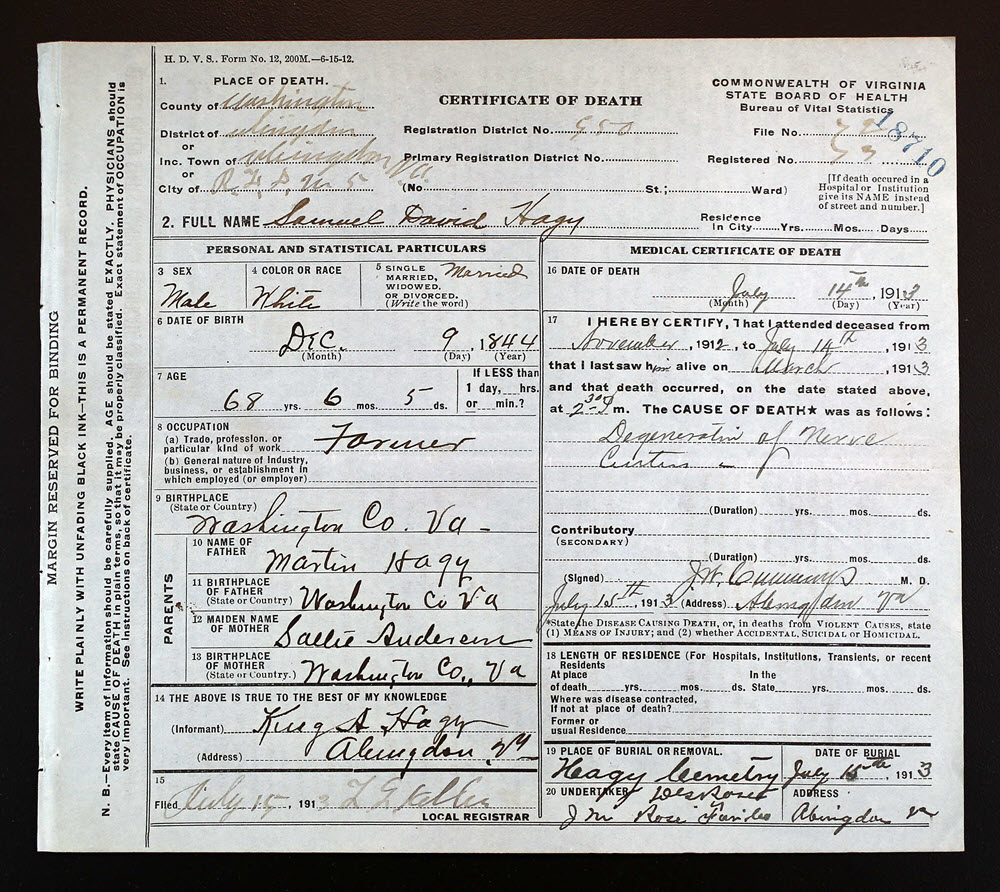 H. D. V. S.. Form No. 12, 200M.—6-15-12.
MARGIN RESERVED FOR BINDING
WRITE PLAINLY WITH UNFADING BLACK INK—THIS IS A PERMANENT RECORD.
N. B.—Every item of information should be carefully supplied. AGE should be stated EXACTLY. PHYSICIANS should
state CAUSE OF DEATH in plain terms, so that it may be properly classified. Exact statement of OCCUPATION is
very important. See instructions on back of certificate.
1. PLACE OF DEATH.
County of Washington
District of Abingdon
or
Inc. Town of Abingdon Va.
or
City of R.F.D. No. 5
CERTIFICATE OF DEATH
Registration District No. 950
Primary Registration District No.
(No St.; Ward)
COMMONWEALTH OF VIRGINIA
STATE BOARD OF HEALTH
Bureau of Vital Statistics
File No.
18710
Registered No. 53
[If death occured in a
Hospital or Institution
give its NAME instead
of street and number.]
2. FULL NAME Samuel David Hagy
Residence
In City Yrs. Mos. Days
PERSONAL AND STATISTICAL PARTICULARS
3 SEX
Male
4 COLOR OR RACE
White
5 SINGLE
MARRIED,
WIDOWED.
OR DIVORCED.
(Write the word)
Married
6 DATE OF BIRTH
Dec. 9, 1844
(Month) (Day) (Year)
7 AGE
68 yrs. 6 mos. 5 ds.
If LESS than
1 day, hrs.
or min.?
8 OCCUPATION
(a) Trade, profession. or
particular kind of work
Farmer
(b) General nature of Industry,
business, or establishment in
which employed (or employer)
9 BIRTHPLACE
(State or Country)
Washington Co. Va -
PARENTS
10 NAME OF
FATHER
Martin Hagy
11 BIRTHPLACE
OF FATHER
(State or Country)
Washington Co Va
12 MAIDEN NAME
OF MOTHER
Sallie Anderson
13 BIRTHPLACE
OF MOTHER
(State or Country.)
Washington Co., Va
14 THE ABOVE IS TRUE TO THE BEST OF MY KNOWLEDGE
(Informant) King A Hagy
(Address) Abingdon, Va
15
Filed July 15, 1913
LOCAL REGISTRAR
MEDICAL CERTIFICATE OF DEATH
16 DATE OF DEATH
July 14th, 1913
(Month) (Day) (Year)
17 I HEREBY CERTIFY, That I attended deceased from
November, 1912, to July 14th, 1913
that I last saw him alive on March, 1913
and that death occurred, on the date stated above,
at 2-30 P m. The CAUSE OF DEATH★ was as follows:
Degeneration of Nerve
Centers -
(Duration) yrs. mos. ds.
Contributory
(SECONDARY)
(Duration) yrs. mos. ds.
(Signed) J.W. Cummings M. D.
July 15th, 1913 (Address) Abingdon Va
*State the DISEASE CAUSING DEATH, or, in deaths from VIOLENT CAUSES, state
(1) MEANS OF INJURY; and (2) whether ACCIDENTAL, SUICIDAL or HOMICIDAL.
18 LENGTH OF RESIDENCE (For Hospitals, Institutions, Transients, or recent
Residents
At place In the
of death yrs. mos. ds. State yrs. mos. ds.
Where was disease contracted,
If not at place of death?
Former or
usual Residence
19 PLACE OF BURIAL OR REMOVAL.
Hagy Cemetry
DATE OF BURIAL
July 15th, 1913
20 UNDERTAKER
J M Rose
ADDRESS
Abingdon Va